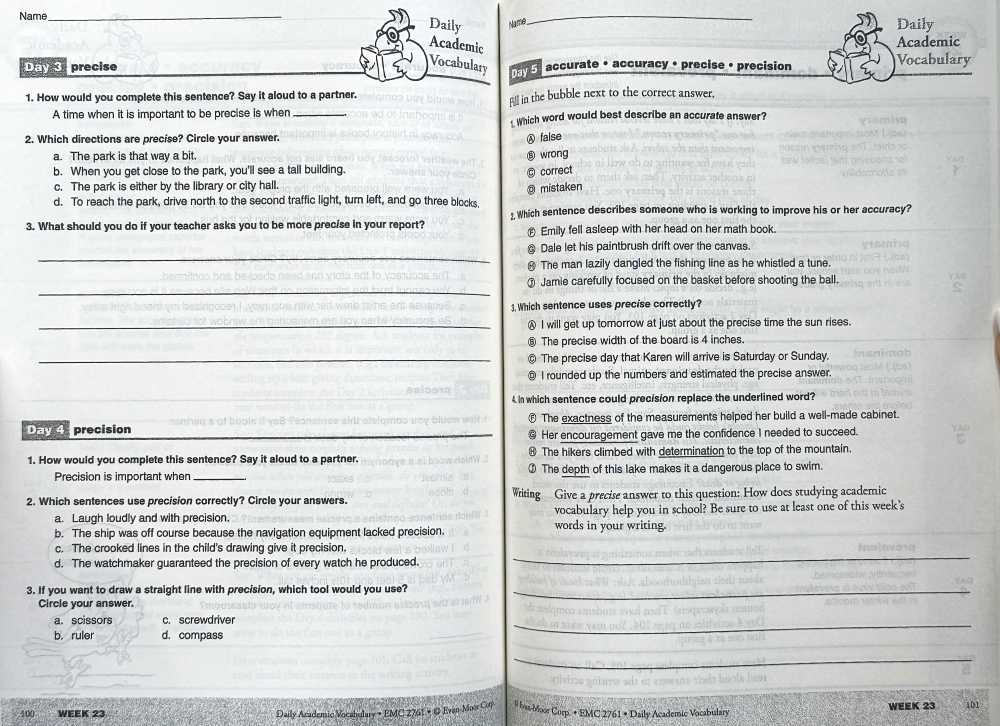 Name
Daily
Academic
Vocabulary
Day 3 precise
1. How would you complete this sentence? Say it aloud to a partner.
A time when it is important to be precise is when ________.
2. Which directions are precise? Circle your answer.
a. The park is that way a bit.
b. When you get close to the park, you'll see a tall building.
c. The park is either by the library or city hall.
d. To reach the park, drive north to the second traffic light, turn left, and go three blocks.
3. What should you do if your teacher asks you to be more precise in your report?
Day 4 precision
1. How would you complete this sentence? Say it aloud to a partner.
Precision is important when ________.
2. Which sentences use precision correctly? Circle your answers.
a. Laugh loudly and with precision.
b. The ship was off course because the navigation equipment lacked precision.
c. The crooked lines in the child's drawing give it precision.
d. The watchmaker guaranteed the precision of every watch he produced.
3. If you want to draw a straight line with precision, which tool would you use?
Circle your answer.
a. scissors c. screwdriver
b. ruler d. compass
100 WEEK 23 Daily Academic Vocabulary • EMC 2761 • © Evan-Moor Corp.
Name
Daily
Academic
Vocabulary
Day 5 accurate • accuracy • precise • precision
Fill in the bubble next to the correct answer.
1. Which word would best describe an accurate answer?
Ⓐ false
Ⓑ wrong
Ⓒ correct
Ⓓ mistaken
2. Which sentence describes someone who is working to improve his or her accuracy?
Ⓕ Emily fell asleep with her head on her math book.
Ⓖ Dale let his paintbrush drift over the canvas.
Ⓗ The man lazily dangled the fishing line as he whistled a tune.
Ⓙ Jamie carefully focused on the basket before shooting the ball.
3. Which sentence uses precise correctly?
Ⓐ I will get up tomorrow at just about the precise time the sun rises.
Ⓑ The precise width of the board is 4 inches.
Ⓒ The precise day that Karen will arrive is Saturday or Sunday.
Ⓓ I rounded up the numbers and estimated the precise answer.
4. In which sentence could precision replace the underlined word?
Ⓕ The exactness of the measurements helped her build a well-made cabinet.
Ⓖ Her encouragement gave me the confidence I needed to succeed.
Ⓗ The hikers climbed with determination to the top of the mountain.
Ⓙ The depth of this lake makes it a dangerous place to swim.
Writing Give a precise answer to this question: How does studying academic
vocabulary help you in school? Be sure to use at least one of this week's
words in your writing.
© Evan-Moor Corp. • EMC 2761 • Daily Academic Vocabulary WEEK 23 101